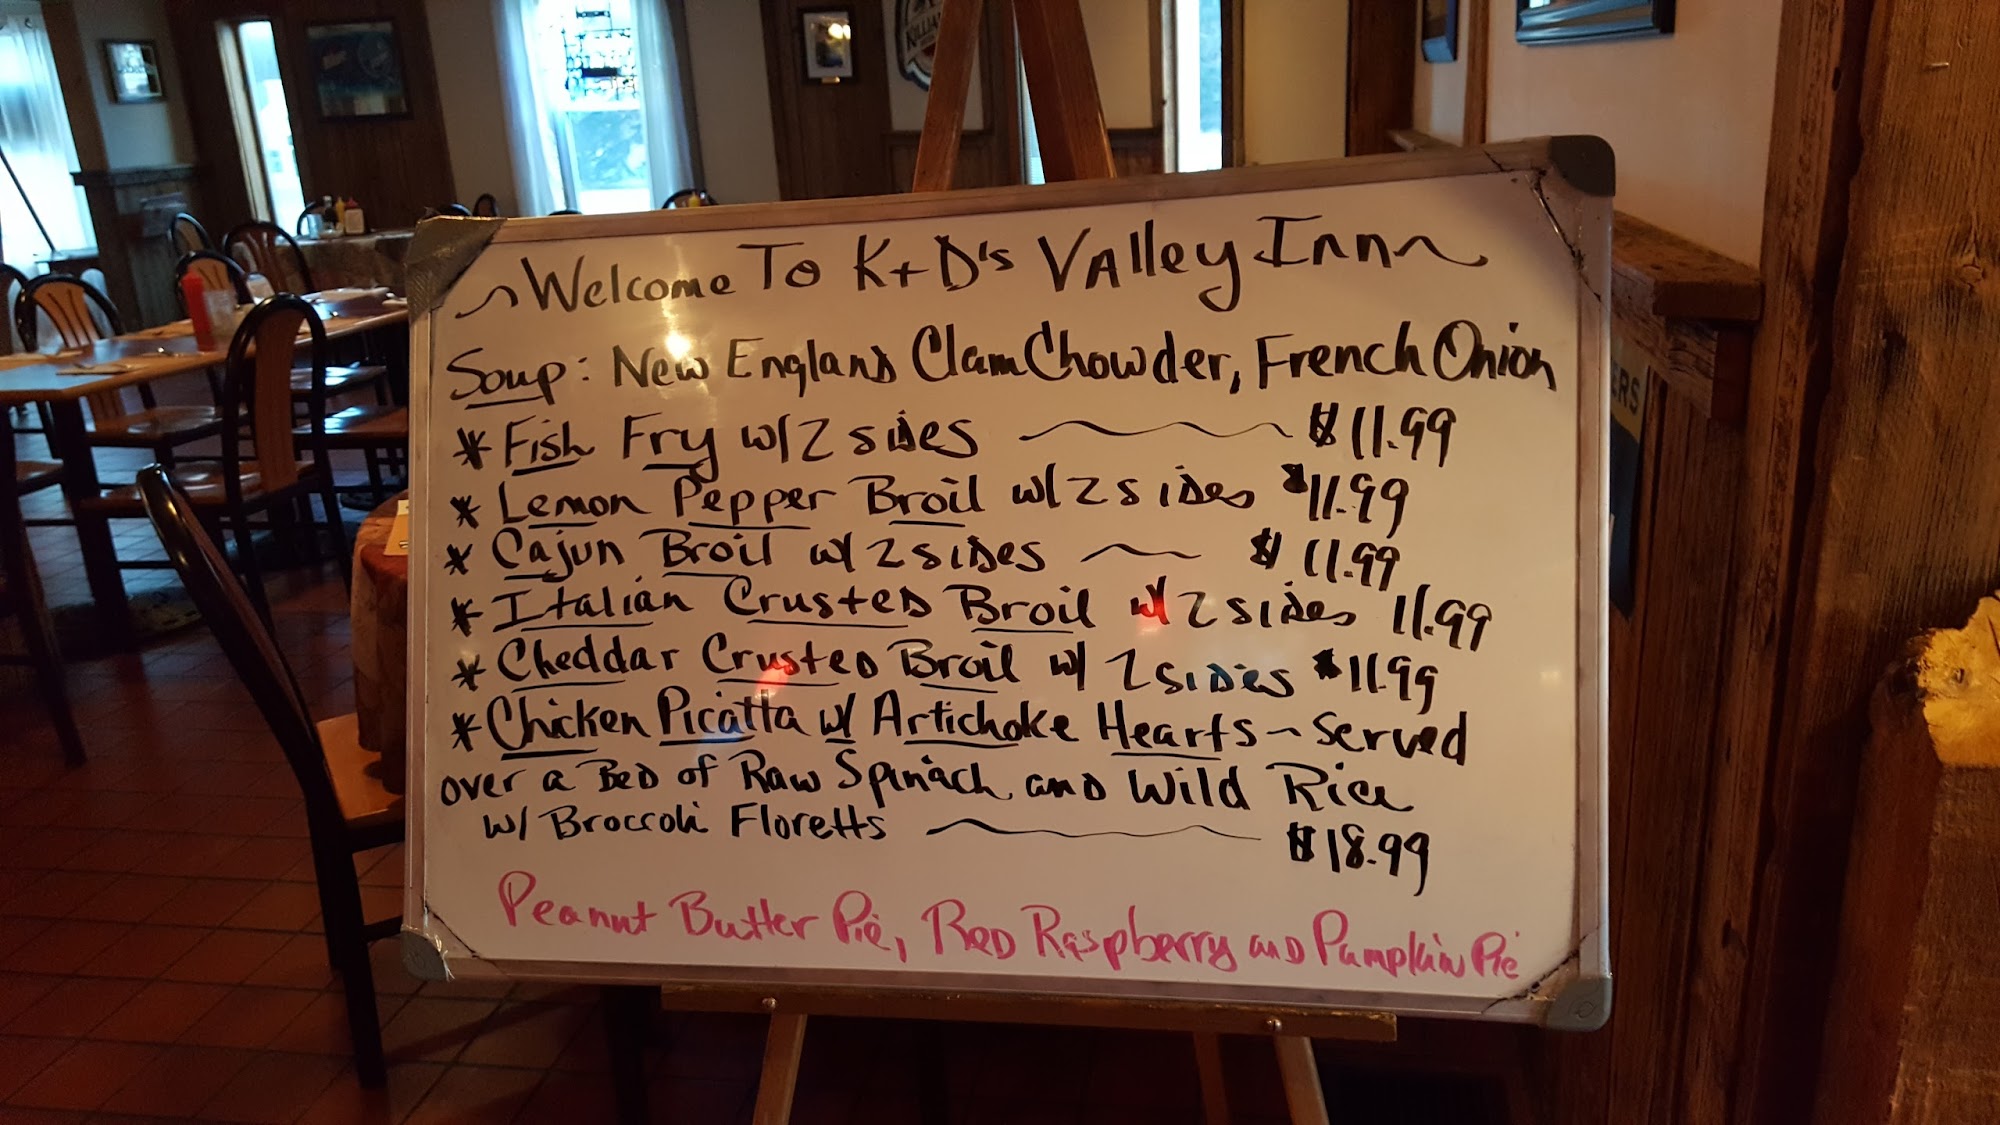 KILLIAN'S
ERS
~Welcome To K+D's Valley Inn~
Soup: New England Clam Chowder, French Onion
* Fish Fry w/ 2 sides ~ $11.99
* Lemon Pepper Broil w/ 2 sides $11.99
* Cajun Broil w/ 2 sides ~ $11.99
* Italian Crusted Broil w/ 2 sides 11.99
* Cheddar Crusted Broil w/ 2 sides $11.99
* Chicken Picatta w/ Artichoke Hearts ~ Served
over a Bed of Raw Spinach and Wild Rice
w/ Broccoli Floretts ~ $18.99
Peanut Butter Pie, Red Raspberry and Pumpkin Pie